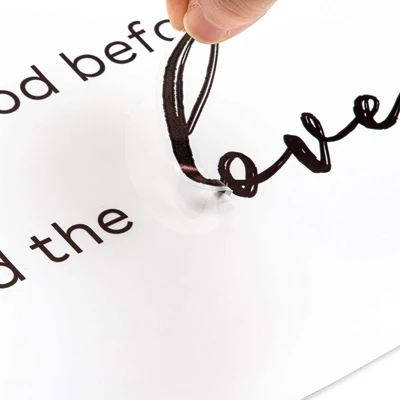 od befo
love
d the